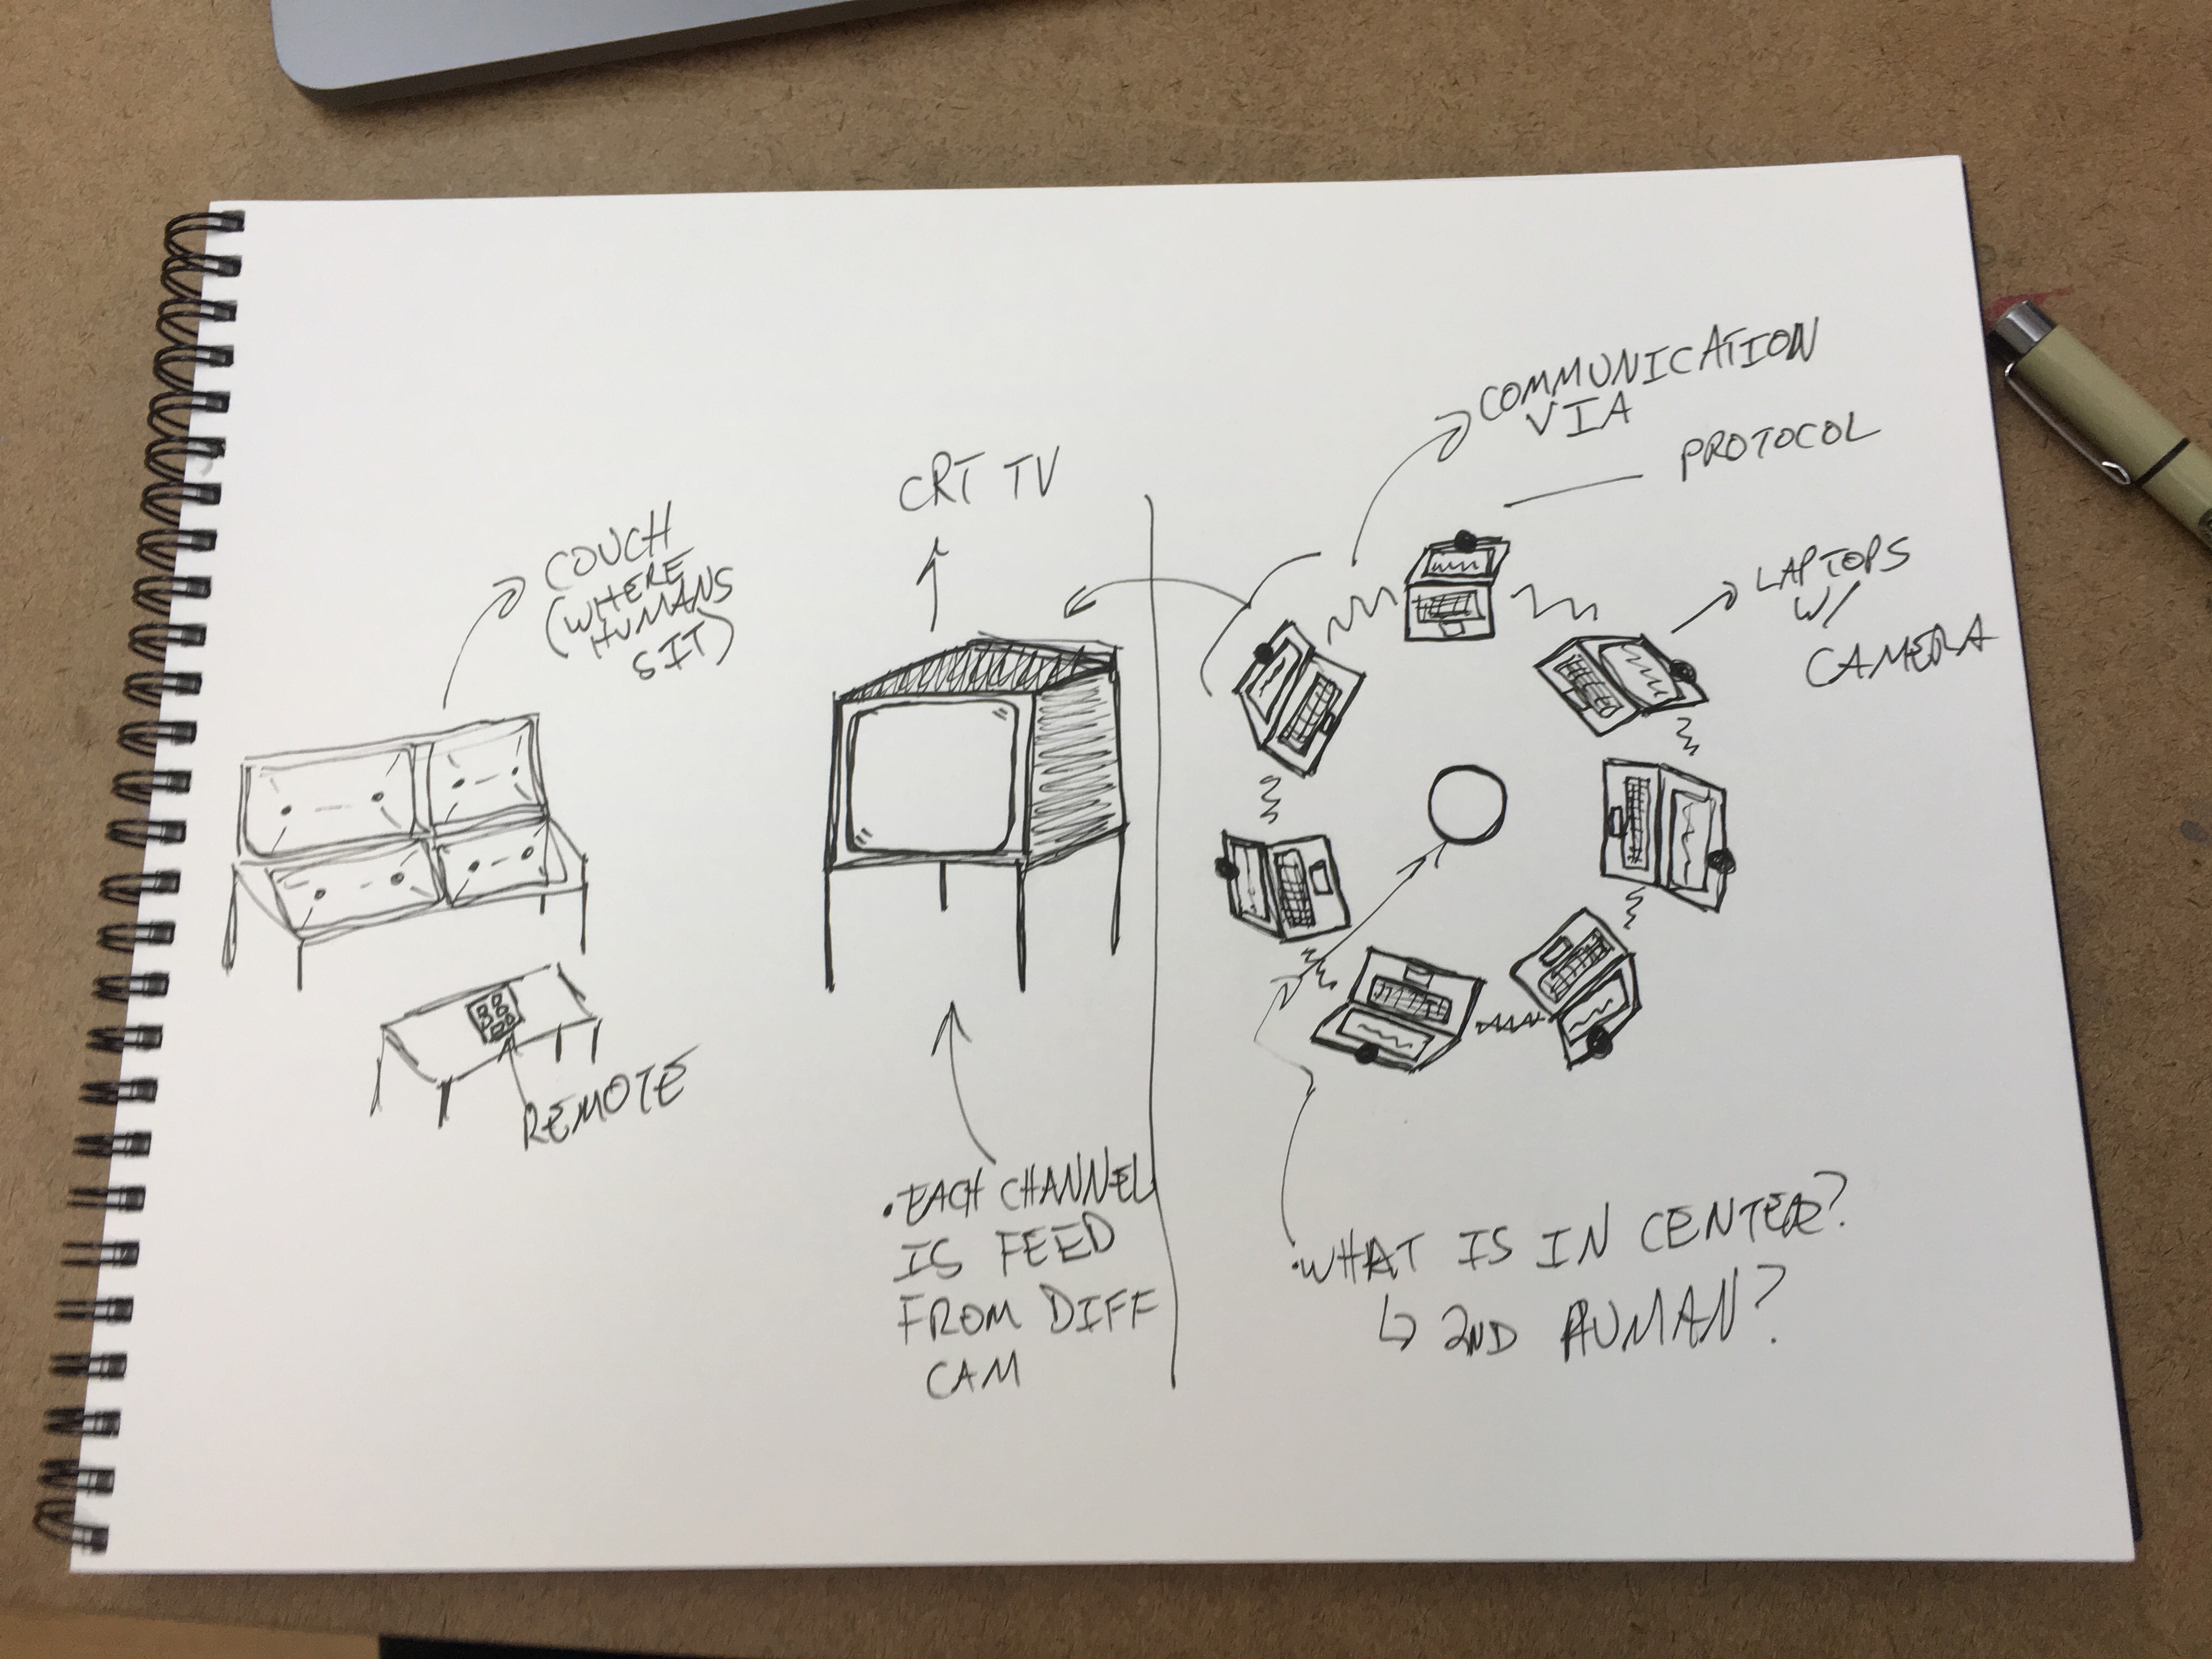 COUCH
(WHERE
HUMANS
SIT)
REMOTE
CRT TV
• EACH CHANNEL
IS FEED
FROM DIFF
CAM
COMMUNICATION
VIA
PROTOCOL
LAPTOPS
W/
CAMERA
• WHAT IS IN CENTER?
↳ 2ND HUMAN?